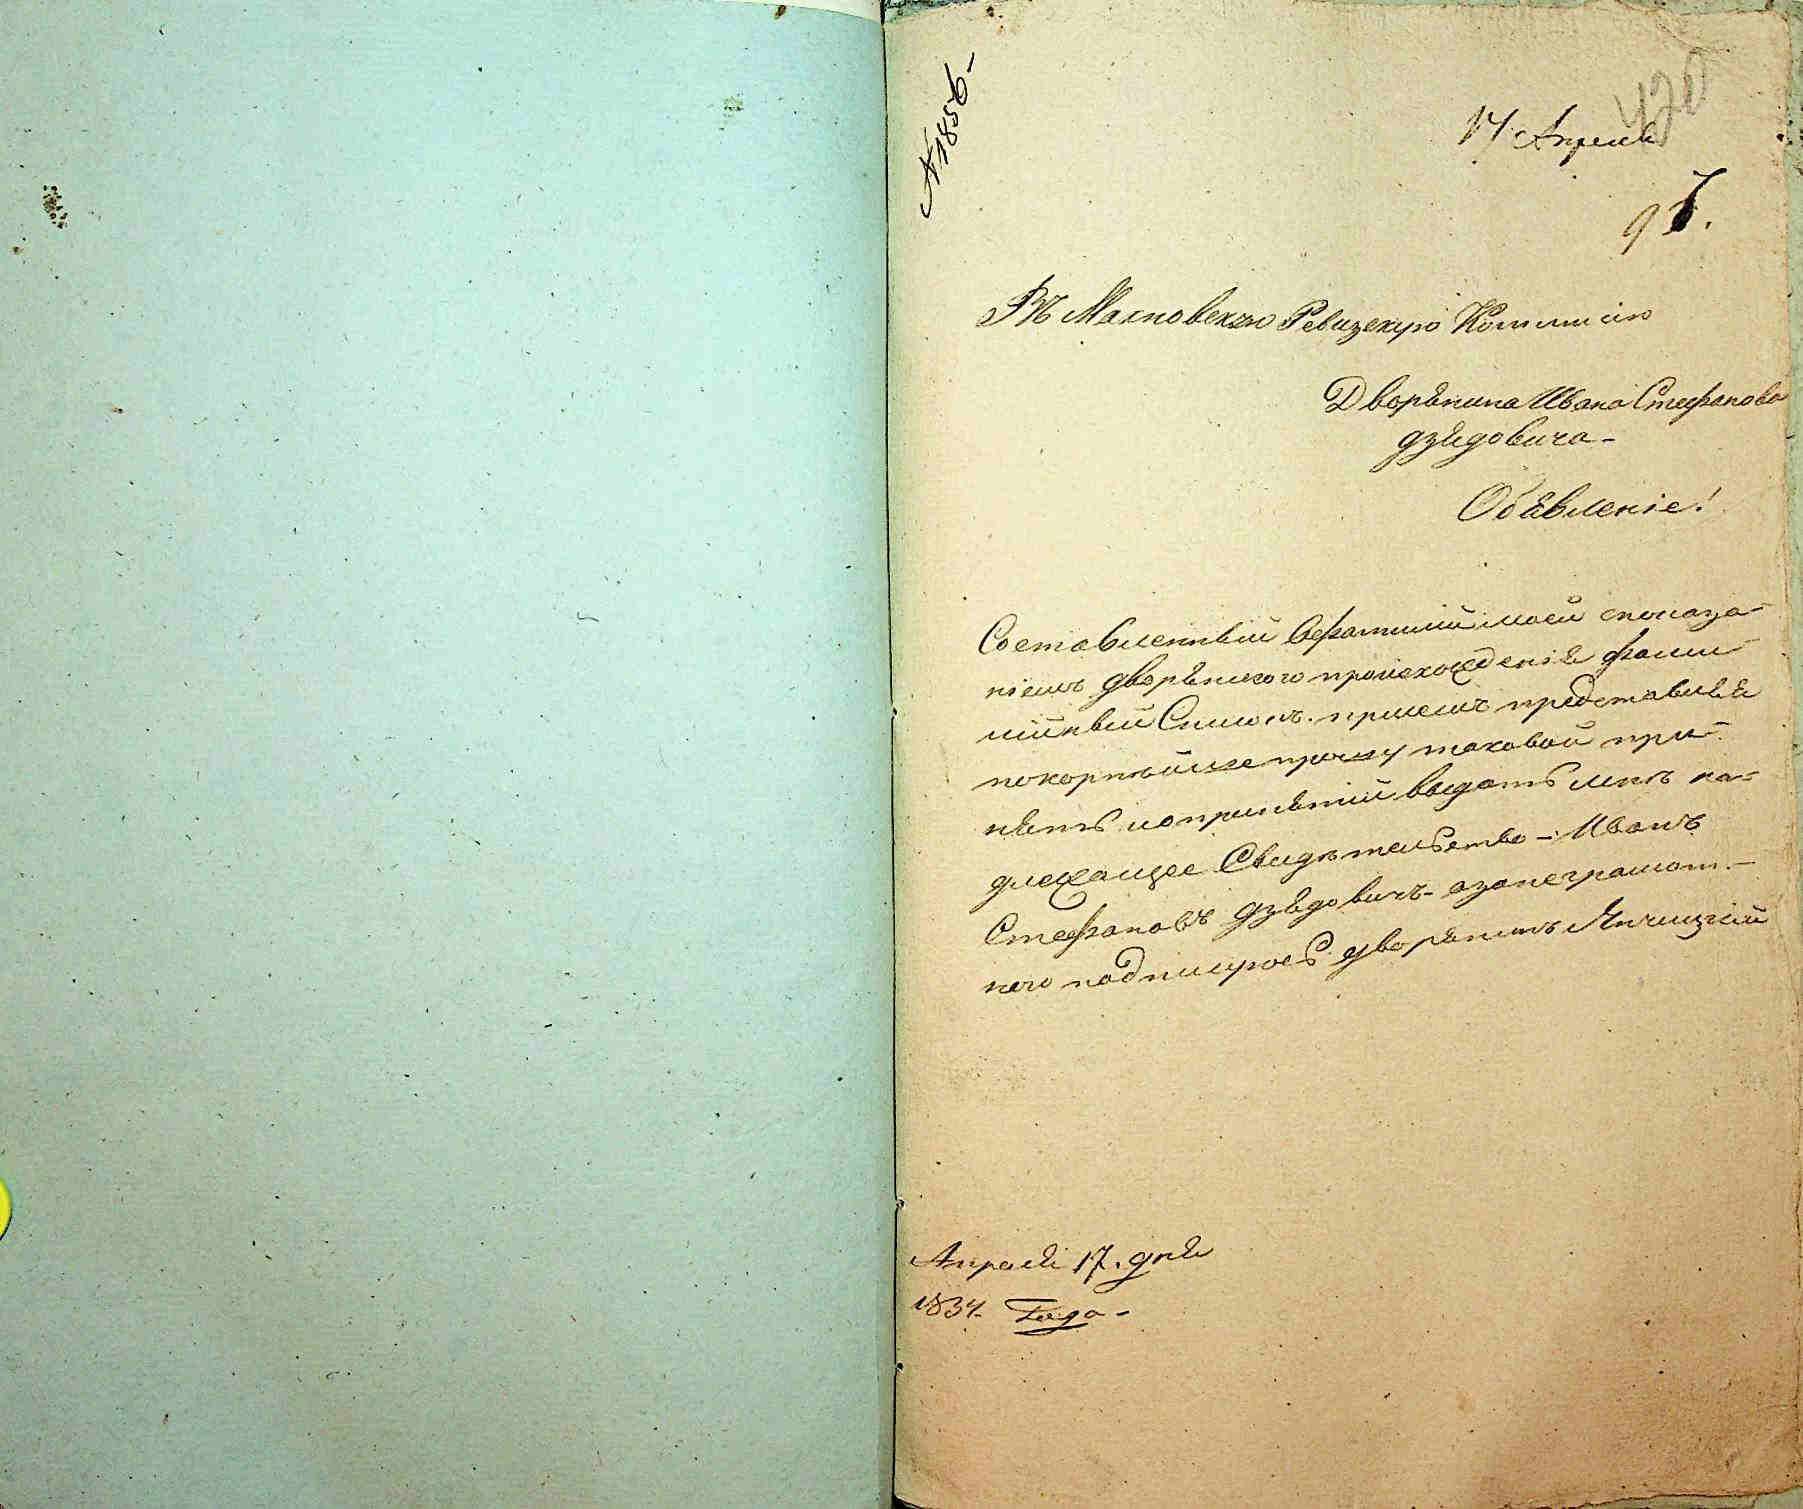 № 1856-
420
17 Апреля
9
Въ Махновскою Ревизскую Коммисію
Дворянина Ивана Стефанова
Дзядовича -
Объявленіе!
Составленный офамиліи моей споказа-
ніемъ дворянского происхожденія фами-
лійный Списокъ. присемъ представивъ
покорнѣйше прошу таковой при-
нять ипринятіи выдать мнѣ на-
длежащее Свидѣтельство - Иванъ
Стефановъ Дзядовичъ - азанеграмот-
ного подписуюсъ дворянинъ
Апреля 17. дня
1834. Года -